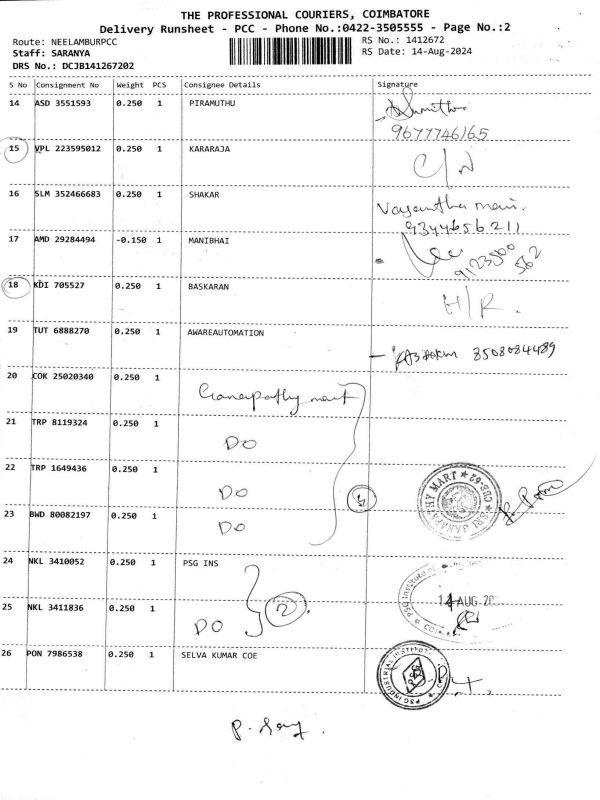 THE PROFESSIONAL COURIERS, COIMBATORE
Delivery Runsheet - PCC - Phone No.:0422-3505555 - Page No.:2
Route: NEELAMBURPCC RS No.: 1412672
Staff: SARANYA RS Date: 14-Aug-2024
DRS No.: DCJB141267202
S No Consignment No Weight PCS Consignee Details Signature
14 ASD 3551593 0.250 1 PIRAMUTHU
9677746165
15 VPL 223595012 0.250 1 KARARAJA
16 SLM 352466683 0.250 1 SHAKAR
Vasantha mani.
9344656211
17 AMD 29284494 -0.150 1 MANIBHAI
9123500
562
18 KDI 705527 0.250 1 BASKARAN
H/R.
19 TUT 6888270 0.250 1 AWAREAUTOMATION
8508084489
20 COK 25020340 0.250 1
Ganapathy mart
21 TRP 8119324 0.250 1
DO
22 TRP 1649436 0.250 1
DO
SRI GANAPATHY MART ★ CBE-62 ★
23 BWD 80082197 0.250 1
DO
24 NKL 3410052 0.250 1 PSG INS
PSG Institute of
14 AUG 20
25 NKL 3411836 0.250 1
DO 2
26 PON 7986538 0.250 1 SELVA KUMAR COE
PSG INDUSTRIAL INSTITUTE